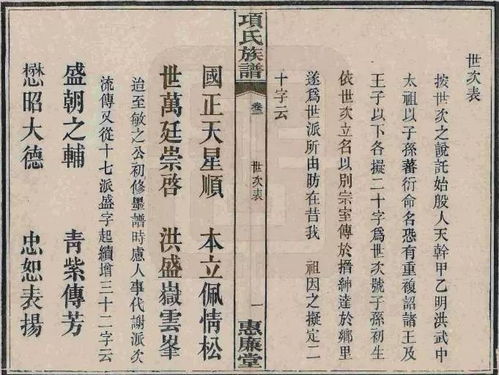 世次表
按世次之說託始殷人天幹甲乙明洪武中
太祖以子孫蕃衍命名恐有重複詔諸王及
王子以下各擬二十字為世次號子孫初生
依世次立名以別宗室傳於搢紳達於鄉里
遂為世派所由昉在昔我 祖因之擬定二
十字云
項氏族譜
卷一
世次表
一
惠廉堂
國正天星順 本立佩情松
世萬廷崇啓 洪盛嶽雲峯
迨至敏之公初修墨譜時慮人事代謝派次
流傳又從十七派盛字起續增三十二字云
盛朝之輔 青紫傳芳
懋昭大德 忠恕表揚